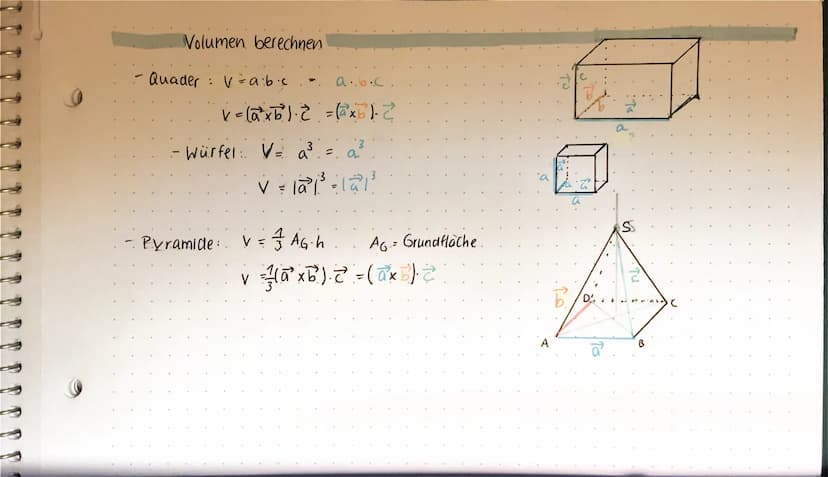 Volumen berechnen
- Quader : V = a·b·c = a·b·c
V = (a⃗ x b⃗)·c⃗ = (a⃗ x b⃗)·c⃗
- Würfel: V = a³ = a³
V = |a⃗|³ = |a⃗|³
- Pyramide: V = 1/3 AG·h AG = Grundfläche
V = 1/3 (a⃗ x b⃗)·c⃗ = (a⃗ x b⃗)·c⃗
c⃗ c
b⃗
b a⃗
a
a a⃗
a a⃗
a
S
b⃗ c⃗
D C
A B
a⃗